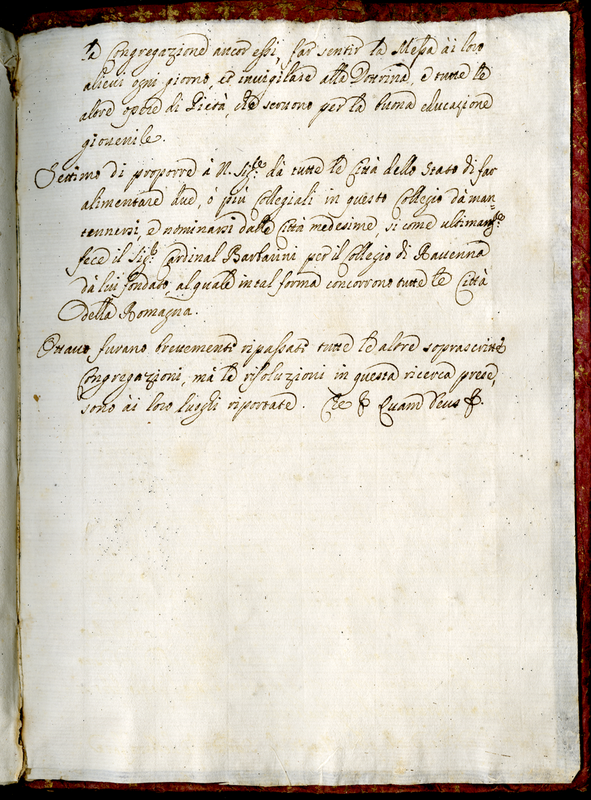 la Congregazione ancor essi, far sentir la Messa ài loro
alievi ogni giorno, et invigilare alla Dottrina, e tutte le
altre opere di Pietà, che seruono per la buona educazione
giouenile.
Settimo di proporre à N. Sig.re dà tutte le Città dello Stato di far
alimentare due, ò più Collegiali in questo Collegio dà man-
tennersi, e nominarsi dalle Città medesime, si come ultimam.te
fece il Sig.r Cardinal Barbarini per il Collegio di Rauenna
dà lui fondato, al quale in tal forma concorrono tutte le Città
della Romagna.
Ottauo furano breuementi ripassati tutte le altre soprascritte
Congregazioni, mà le risoluzioni in questa ricerca prese,
sono ài loro luoghi riportate. Quam Deus